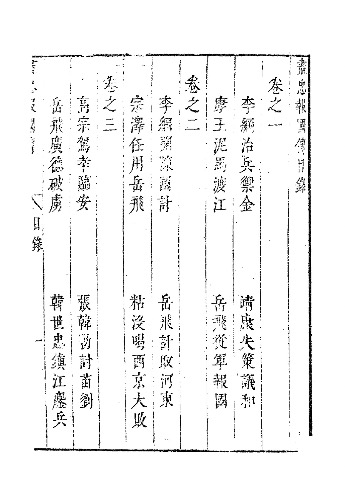 盡忠報國傳目錄
卷之一
李綱治兵禦金　靖康失策議和
康王泥馬渡江　岳飛從軍報國
卷之二
李綱陳國計　岳飛計敗河東
宗澤任用岳飛　粘沒喝西京大敗
卷之三
高宗駕幸臨安　張韓討苗劉
岳飛廣德破虜　韓世忠鎮江鏖兵
目錄　一